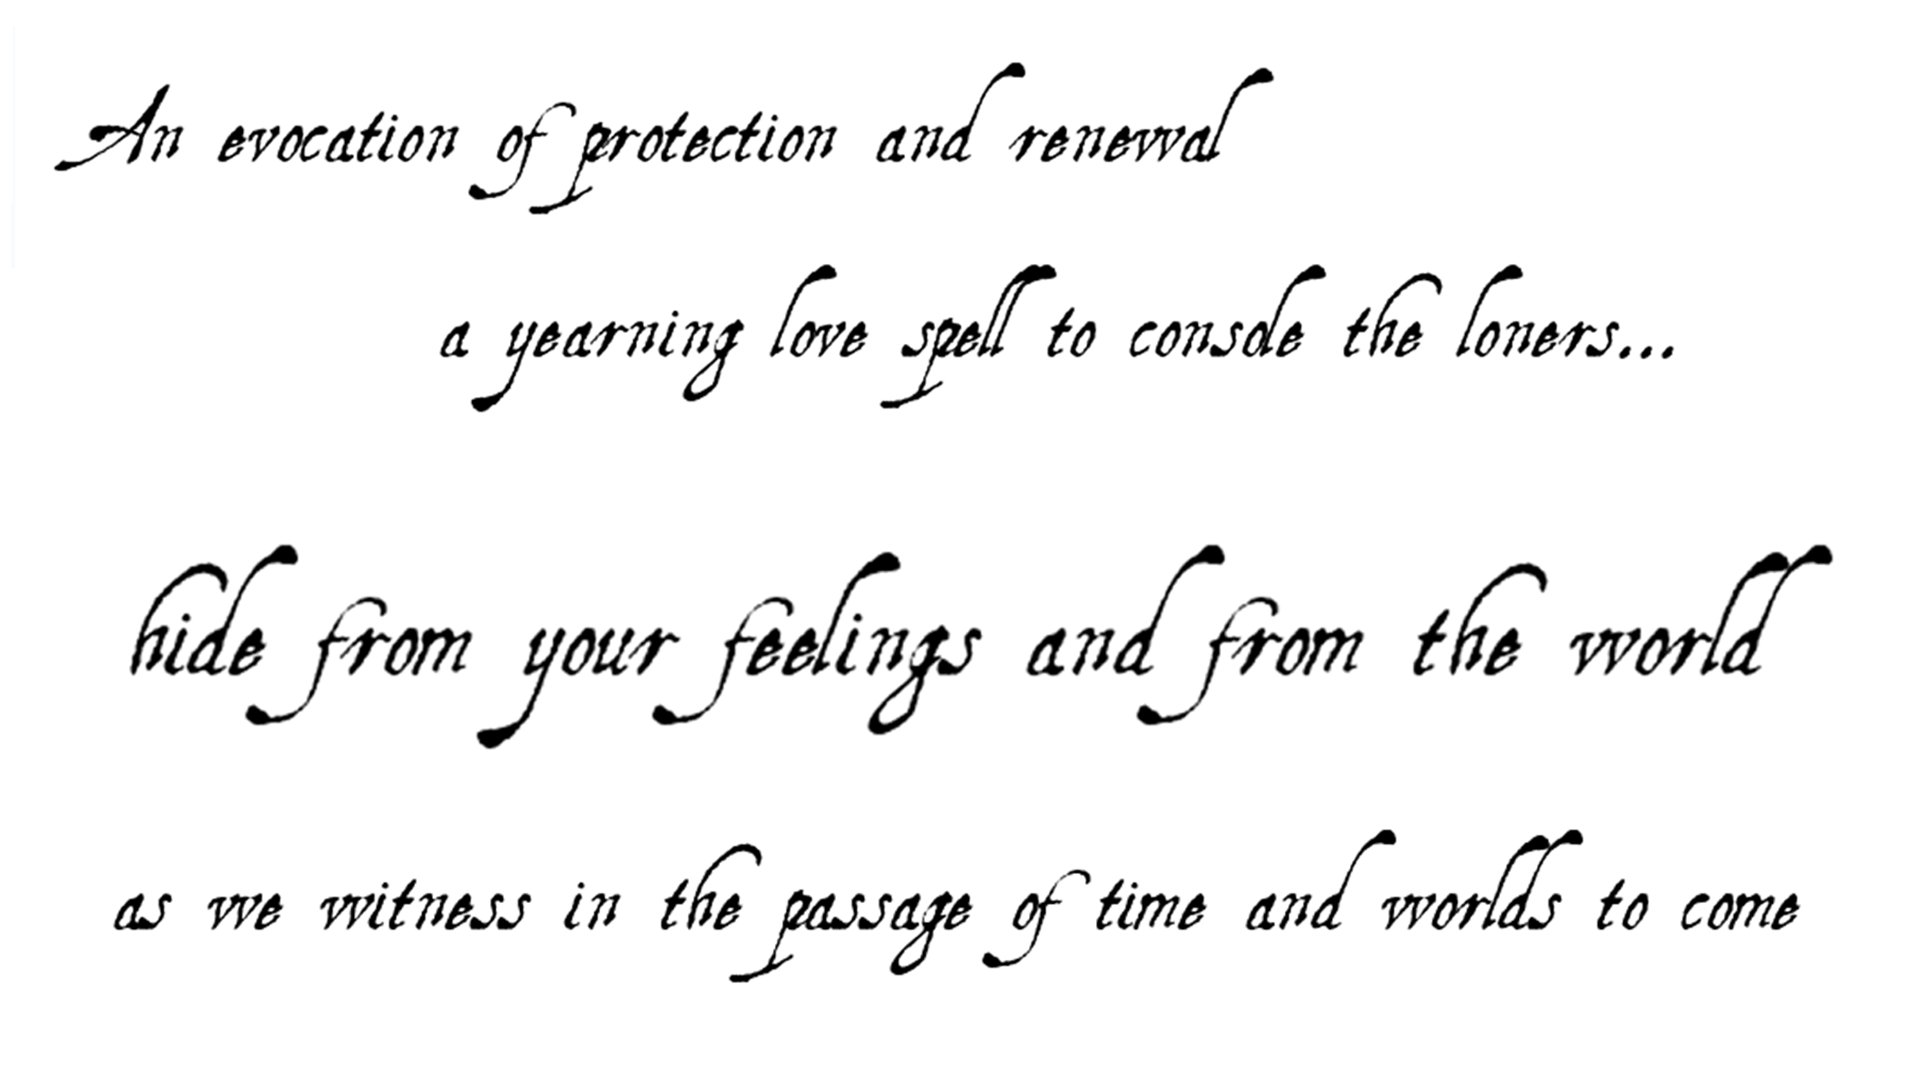 An evocation of protection and renewal
a yearning love spell to console the loners...
hide from your feelings and from the world
as we witness in the passage of time and worlds to come